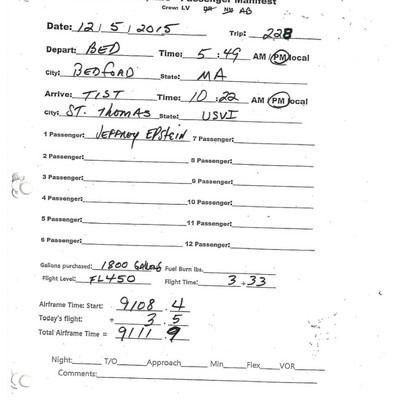 Passenger Manifest
Crew: LV AB
Date: 12/5/2015 Trip: 228
Depart: BED Time: 5:49 AM / PM local
City: BEDFORD State: MA
Arrive: TIST Time: 10:22 AM / PM local
City: ST. THOMAS State: USVI
1 Passenger: JEFFREY EPSTEIN 7 Passenger:
2 Passenger: 8 Passenger:
3 Passenger: 9 Passenger:
4 Passenger: 10 Passenger:
5 Passenger: 11 Passenger:
6 Passenger: 12 Passenger:
Gallons purchased: 1800 GALLONS Fuel Burn lbs.
Flight Level: FL450 Flight Time: 3+33
Airframe Time: Start: 9108.4
Today's flight: + 3.5
Total Airframe Time = 9111.9
Night: T/O Approach Min Flex VOR
Comments: